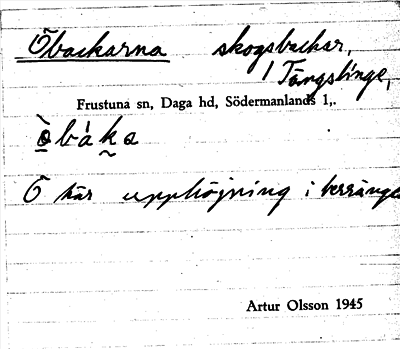 Öbackarna skogsbackar,
i Tängstinge,
Frustuna sn, Daga hd, Södermanlands l,.
ò̱bàka
Ö här upphöjning i terrängen
Artur Olsson 1945